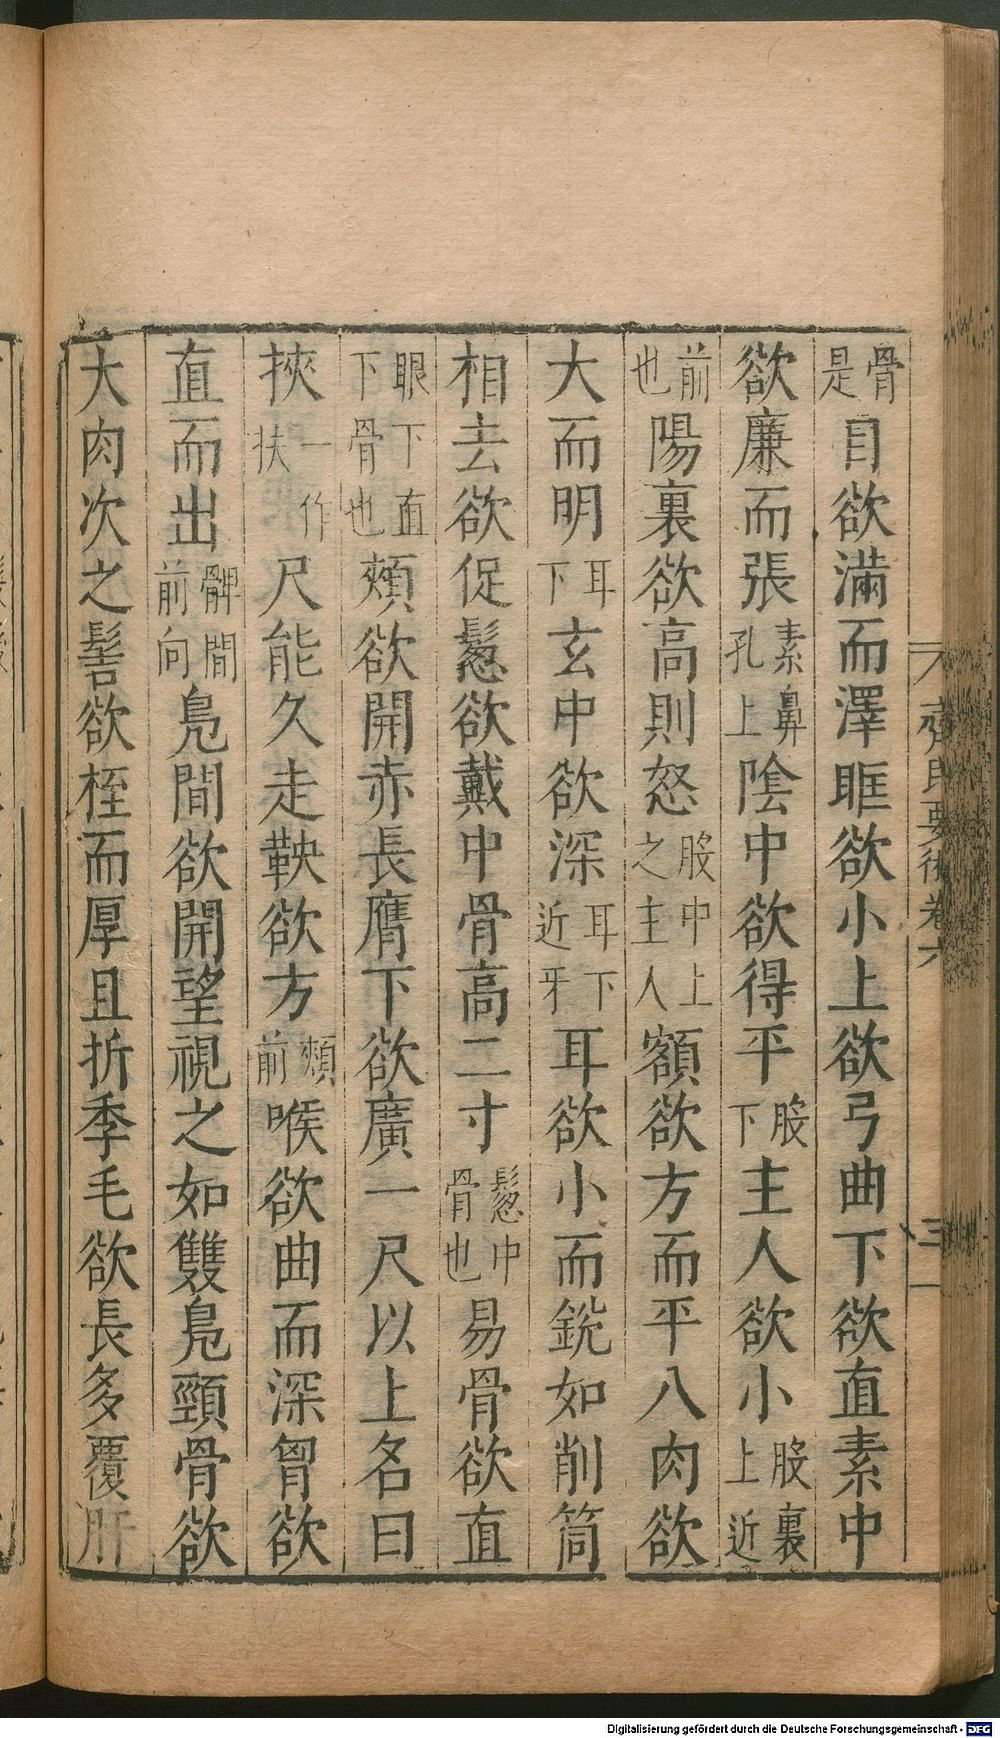 骨是目欲滿而澤眶欲小上欲弓曲下欲直素中
欲廉而張素鼻孔上陰中欲得平股下主人欲小股裏上近
前也陽裏欲高則怒股中上之主人額欲方而平八肉欲
大而明耳下玄中欲深耳下近牙耳欲小而銳如削筒
相去欲促鬉欲戴中骨高二寸鬉中骨也易骨欲直
眼下直下骨也頰欲開赤長膺下欲廣一尺以上名曰
挾一作扶尺能久走鞅欲方頰前喉欲曲而深胷欲
直而出髀間前向鳧間欲開望視之如雙鳧頸骨欲
大肉次之髻欲桎而厚且折季毛欲長多覆肝
齊民要術卷六
三
Digitalisierung gefördert durch die Deutsche Forschungsgemeinschaft - DFG